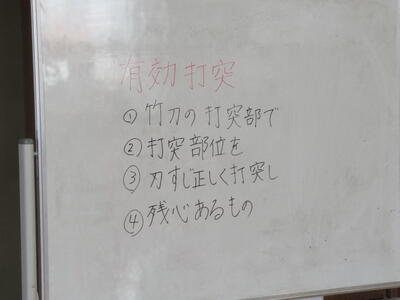 有効打突
① 竹刀の打突部で
② 打突部位を
③ 刃すじ正しく打突し
④ 残心あるもの